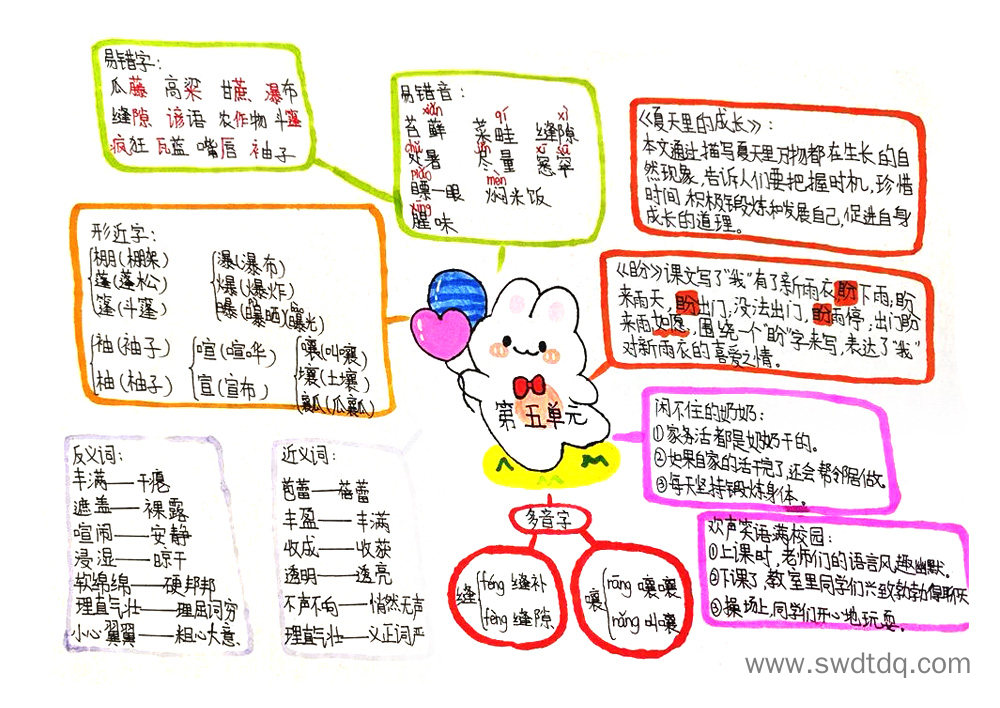 易错字：
瓜藤 高粱 甘蔗 瀑布
缝隙 谚语 农作物 斗篷
疯狂 瓦蓝 嘴唇 袖子
易错音：
xiǎn qí xì
苔藓 菜畦 缝隙
chǔ jǐn xī sū
处暑 尽量 窸窣
piǎo mèn
瞟一眼 焖米饭
xīng
腥味
《夏天里的成长》：
本文通过描写夏天里万物都在生长的自
然现象，告诉人们要把握时机，珍惜
时间，积极锻炼和发展自己，促进自身
成长的道理。
形近字：
棚（棚架）
蓬（蓬松）
篷（斗篷）
瀑（瀑布）
爆（爆炸）
曝（曝晒）（曝光）
袖（袖子）
柚（柚子）
喧（喧哗）
宣（宣布）
嚷（叫嚷）
壤（土壤）
瓤（瓜瓤）
《盼》课文写了“我”有了新雨衣盼下雨；盼
来雨天，盼出门，没法出门，盼雨停；出门盼
来雨如愿，围绕一个“盼”字来写，表达了“我”
对新雨衣的喜爱之情。
第五单元
闲不住的奶奶：
①家务活都是奶奶干的。
②如果自家的活干完了，还会帮邻居做。
③每天坚持锻炼身体。
反义词：
丰满——干瘪
遮盖——裸露
喧闹——安静
浸湿——晾干
软绵绵——硬邦邦
理直气壮——理屈词穷
小心翼翼——粗心大意
近义词：
芭蕾——蓓蕾
丰盈——丰满
收成——收获
透明——透亮
不声不响——悄然无声
理直气壮——义正词严
多音字
缝
féng 缝补
fèng 缝隙
嚷
rāng 嚷嚷
rǎng 叫嚷
欢声笑语满校园：
①上课时，老师们的语言风趣幽默。
②下课了，教室里同学们兴致勃勃得聊天
③操场上，同学们开心地玩耍。
www.swdtdq.com